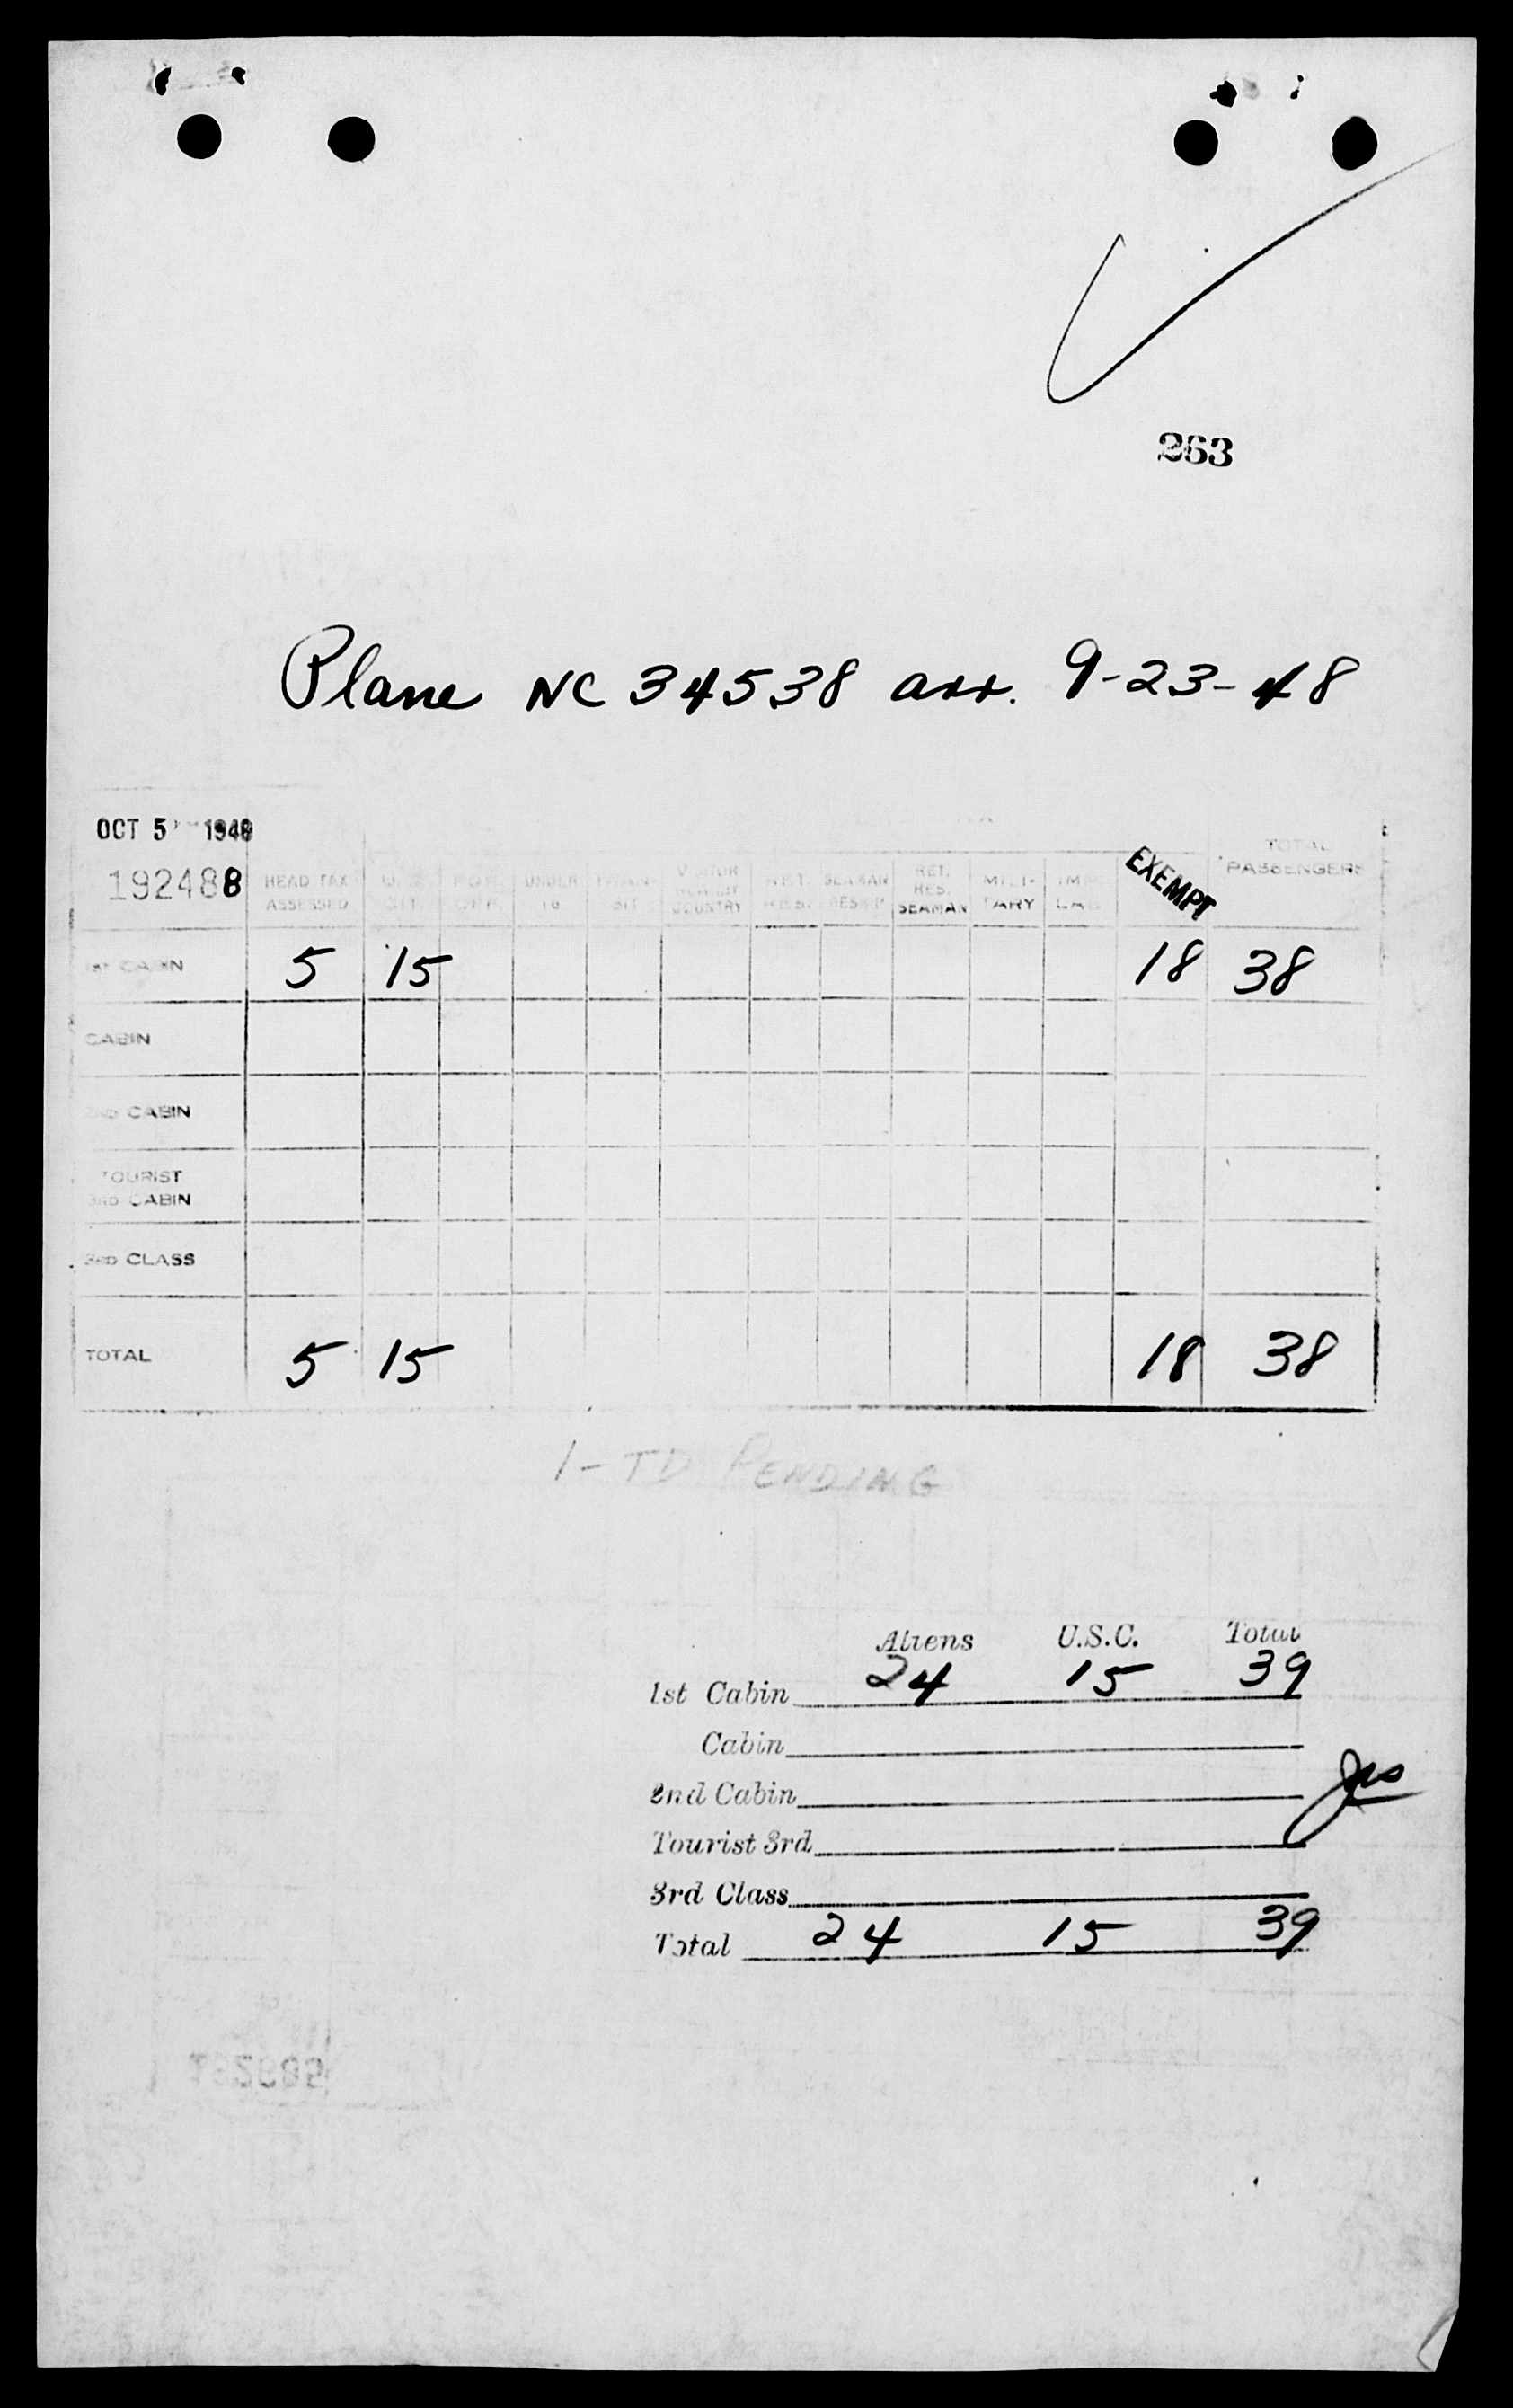 263
Plane NC 34538 arr. 9-23-48
OCT 5 1948
192488
HEAD TAX ASSESSED
UNDER 16
COUNTRY
RET. RES. SEAMAN
MILI- TARY
EXEMPT
TOTAL PASSENGERS
1ST CABIN 5 15 18 38
CABIN
2ND CABIN
TOURIST
3RD CABIN
3RD CLASS
TOTAL 5 15 18 38
1-TD PENDING
Aliens U.S.C. Total
1st Cabin 24 15 39
Cabin
2nd Cabin
Tourist 3rd
3rd Class
Total 24 15 39